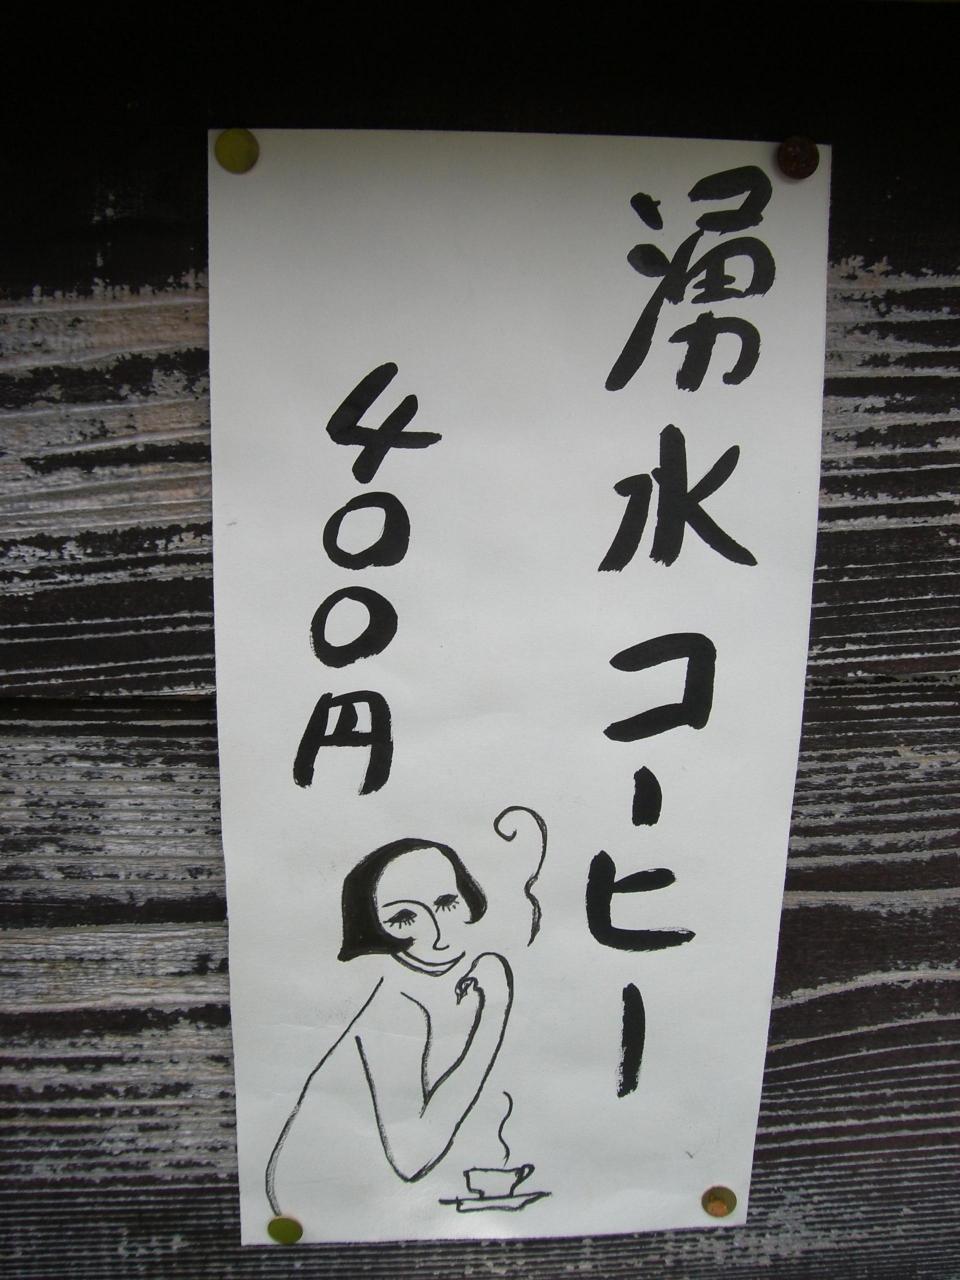 湧水コーヒー
400円